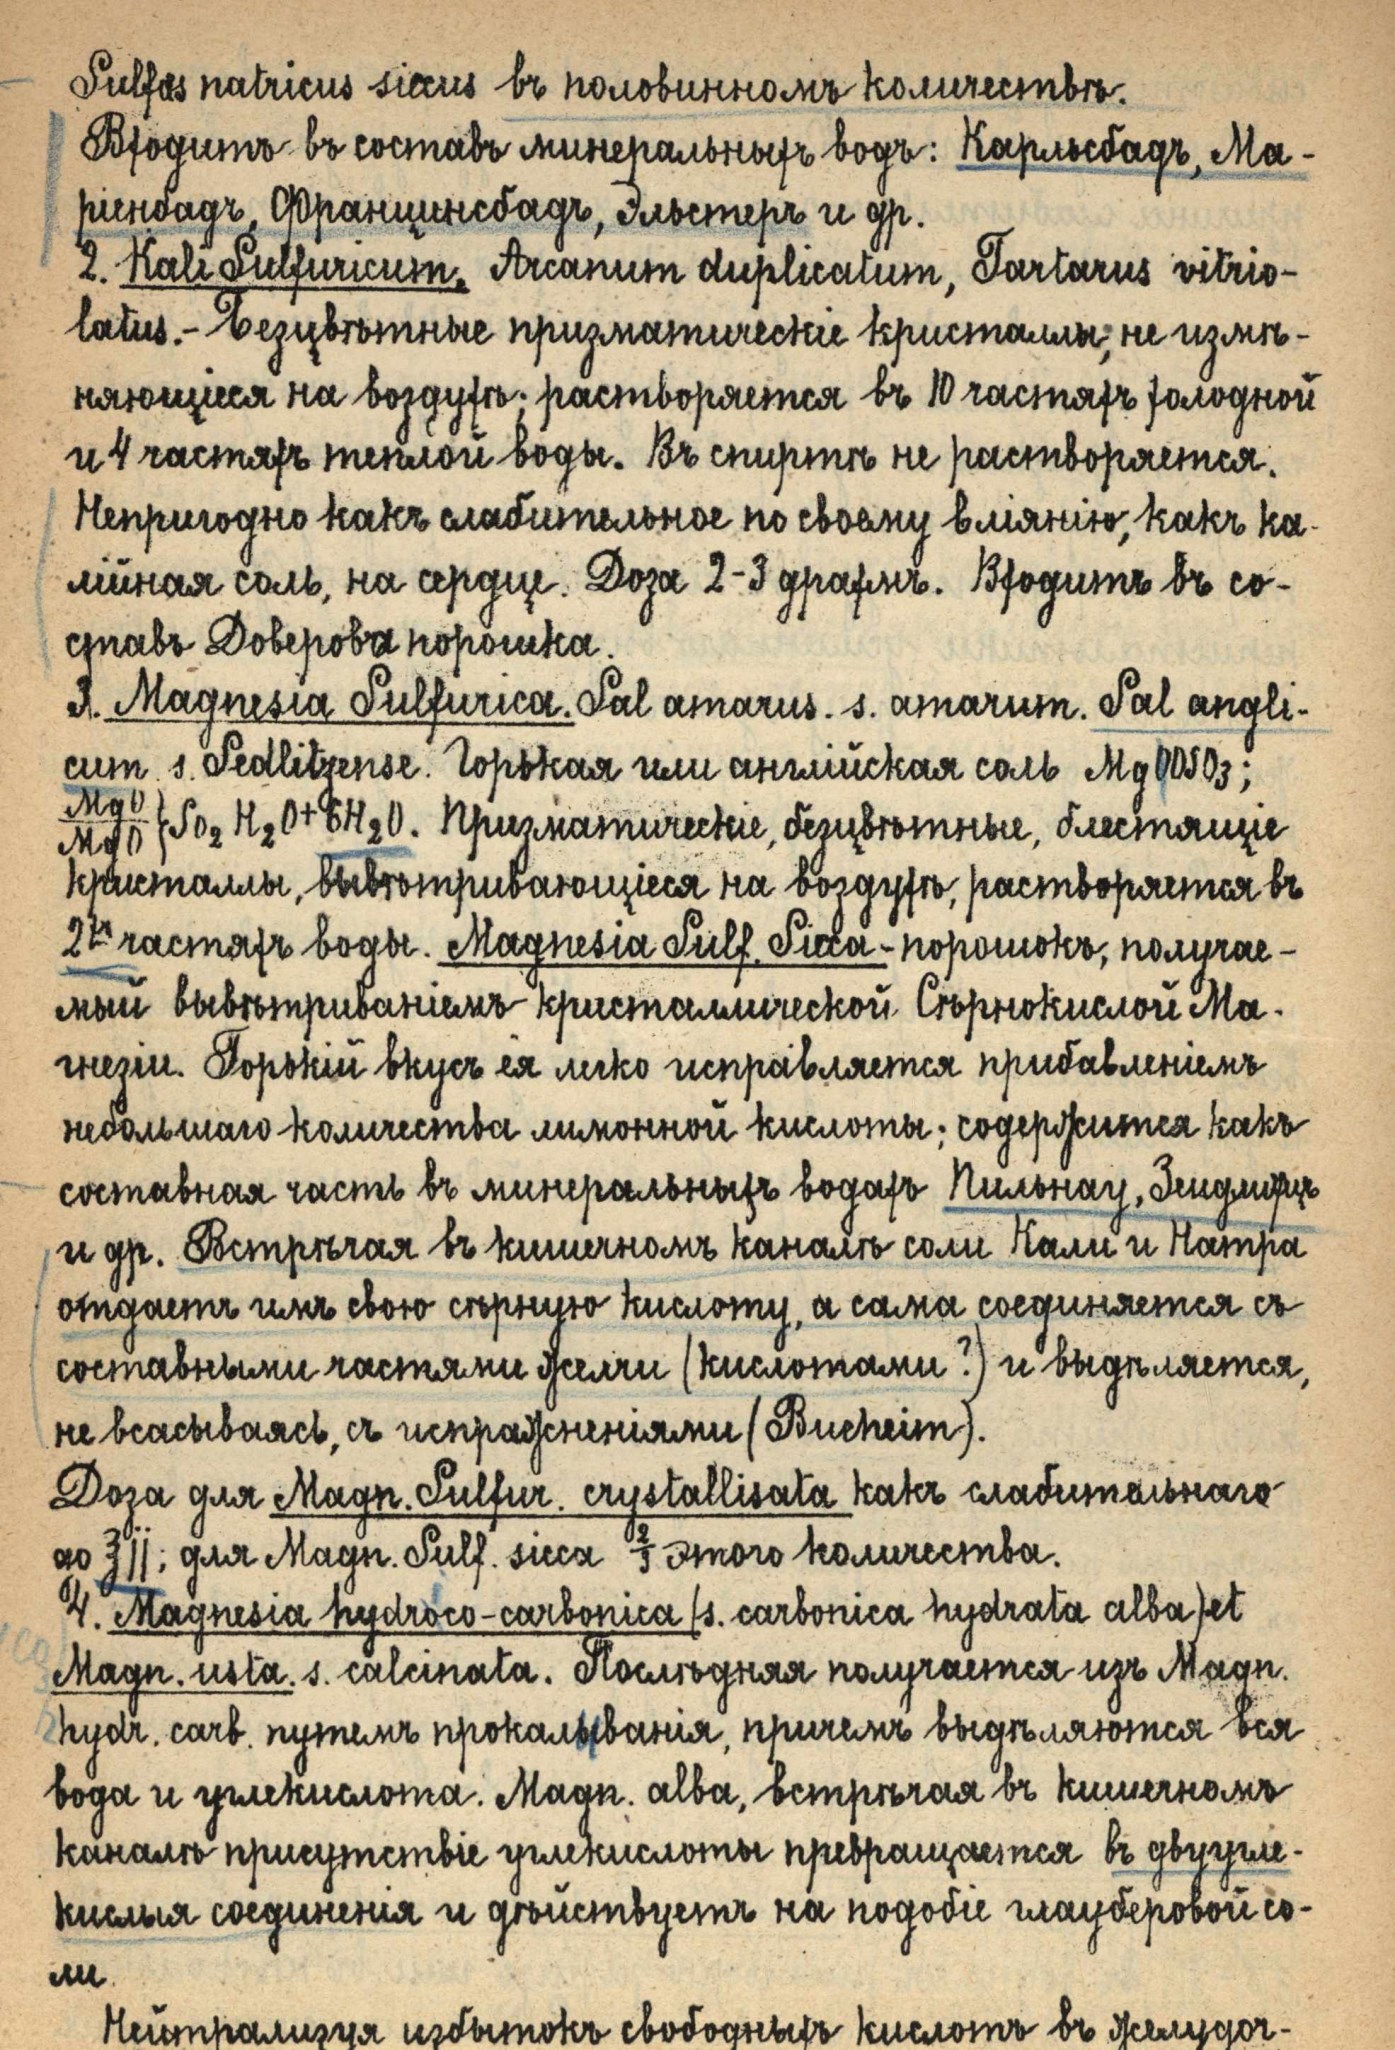 Sulfas natricus siccus въ половинномъ количествѣ.
Входитъ въ составъ минеральныхъ водъ: Карльсбадъ, Ма-
ріенбадъ, Францинсбадъ, Эльстеръ и др.
2. Kali Sulfuricum. Arcanum duplicatum, Tartarus vitrio-
latus. - Безцвѣтные призматическіе кристаллы, не измѣ-
няющіеся на воздухѣ; растворяется въ 10 частяхъ холодной
и 4 частяхъ теплой воды. Въ спиртѣ не растворяется.
Непригодно какъ слабительное по своему вліянію, какъ ка-
лійная соль, на сердце. Доза 2-3 драхмъ. Входитъ въ со-
ставъ Доверова порошка.
3. Magnesia Sulfurica. Sal amarus. s. amarum. Sal angli-
cum s. Sedlitzense. Горькая или англійская соль MgOOSO3;
MgO
MgO } SO2 H2O+6H2O. Призматическіе, безцвѣтные, блестящіе
кристаллы, вывѣтривающіеся на воздухѣ, растворяется въ
2хъ частяхъ воды. Magnesia Sulf. Sicca - порошокъ, получае-
мый вывѣтриваніемъ кристаллической Сѣрнокислой Ма-
гнезіи. Горькій вкусъ ея легко исправляется прибавленіемъ
небольшаго количества лимонной кислоты; содержится какъ
составная часть въ минеральныхъ водахъ Пильнау, Зеидлицъ
и др. Встрѣчая въ кишечномъ каналѣ соли Кали и Натра
отдаетъ имъ свою сѣрную кислоту, а сама соединяется съ
составными частями желчи (кислотами?) и выдѣляется,
не всасываясь, съ испражненіями (Bucheim).
Доза для Magn. Sulfur. crystallisata какъ слабительнаго
до ℥ij; для Magn. Sulf. sicca 2/3 этого количества.
4. Magnesia hydroco-carbonica (s. carbonica hydrata alba) et
Magn. usta. s. calcinata. Послѣдняя получается изъ Magn.
hydr. carb. путемъ прокаливанія, причемъ выдѣляются вся
вода и углекислота. Magn. alba, встрѣчая въ кишечномъ
каналѣ присутствіе углекислоты превращается въ двуугле-
кислыя соединенія и дѣйствуетъ на подобіе глауберовой со-
ли.
Нейтрализуя избытокъ свободныхъ кислотъ въ желудоч-